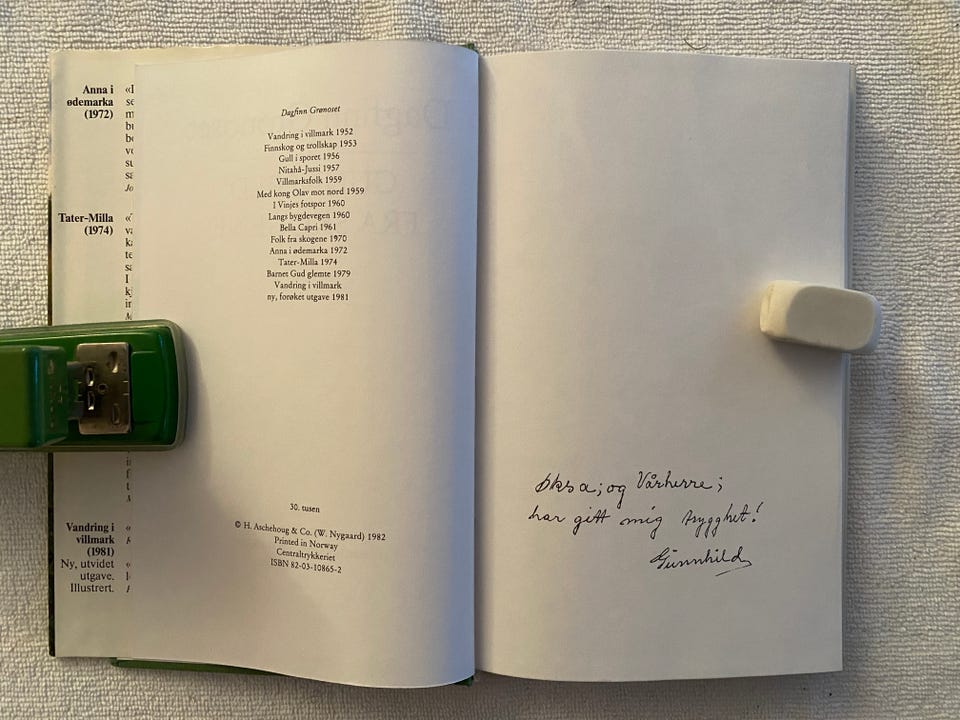 Anna i
ødemarka
(1972)
Tater-Milla
(1974)
Vandring i
villmark
(1981)
Ny, utvidet
utgave.
Illustrert.
Dagfinn Grønoset
Vandring i villmark 1952
Finnskog og trollskap 1953
Gull i sporet 1956
Nitahå-Jussi 1957
Villmarksfolk 1959
Med kong Olav mot nord 1959
I Vinjes fotspor 1960
Langs bygdevegen 1960
Bella Capri 1961
Folk fra skogene 1970
Anna i ødemarka 1972
Tater-Milla 1974
Barnet Gud glemte 1979
Vandring i villmark
ny, forøket utgave 1981
30. tusen
© H. Aschehoug & Co. (W. Nygaard) 1982
Printed in Norway
Centraltrykkeriet
ISBN 82-03-10865-2
Øksa; og Vårherre;
har gitt mig trygghet!
Gunnhild